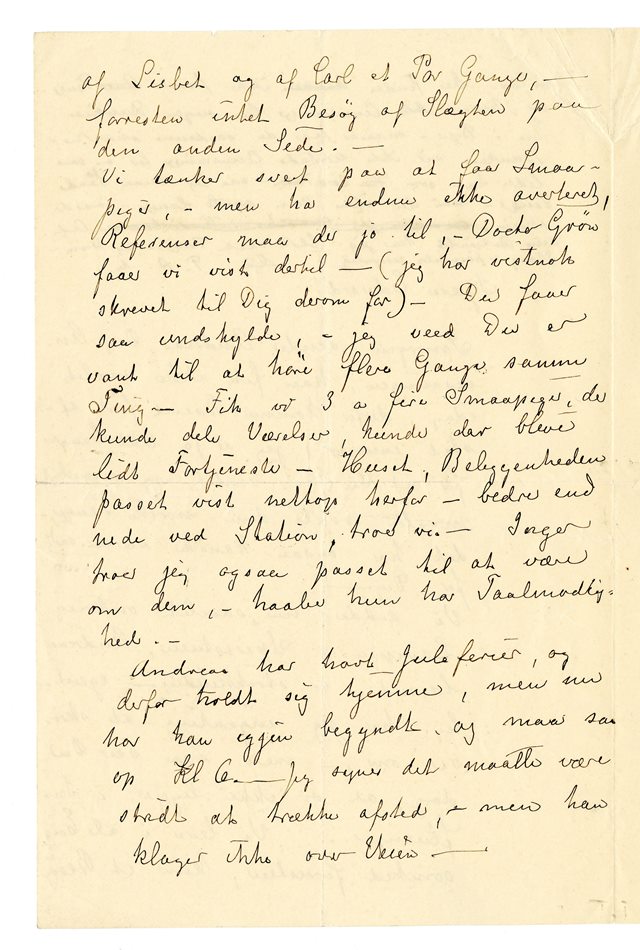 af Lisbet og af Carl et Par Gange, —
forresten intet Besøg af Slægten paa
den anden Side. —
Vi tænker svært paa at faa Smaa-
piger, – men har endnu ikke averteret,
Referenser maa der jo til, – Doctor Grøn
faaer vi vist dertil — (jeg har vistnok
skrevet til Dig derom før) – Du faaer
saa undskylde, – jeg veed Du er
vant til at høre flere Gange samme
Ting — Fik vi 3 a fire Smaapiger, der
kunde dele Værelser, kunde der blive
lidt Fortjeneste – Huset, Beliggenheden
passet vist nettop herfor – bedre end
nede ved Station, troer vi. – Inger
troer jeg ogsaa passet til at være
om dem, – haaber hun har Taalmodig-
hed. –
Andreas har havt Juleferier, og
derfor holdt sig hjemme, men nu
har han igjen begyndt, og maa saa
op Kl 6 — Jeg synes det maatte være
stridt at trække afsted, – men han
klager ikke over Veien —